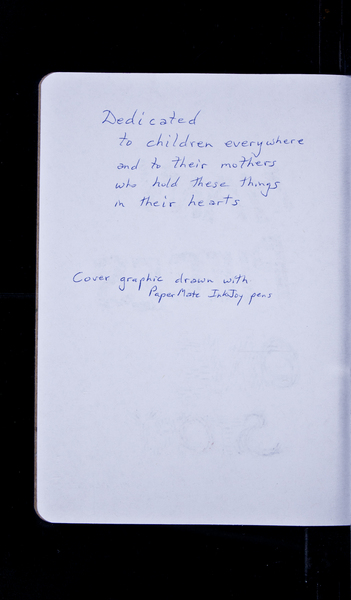 Dedicated
to children everywhere
and to their mothers
who hold these things
in their hearts
Cover graphic drawn with
PaperMate InkJoy pens